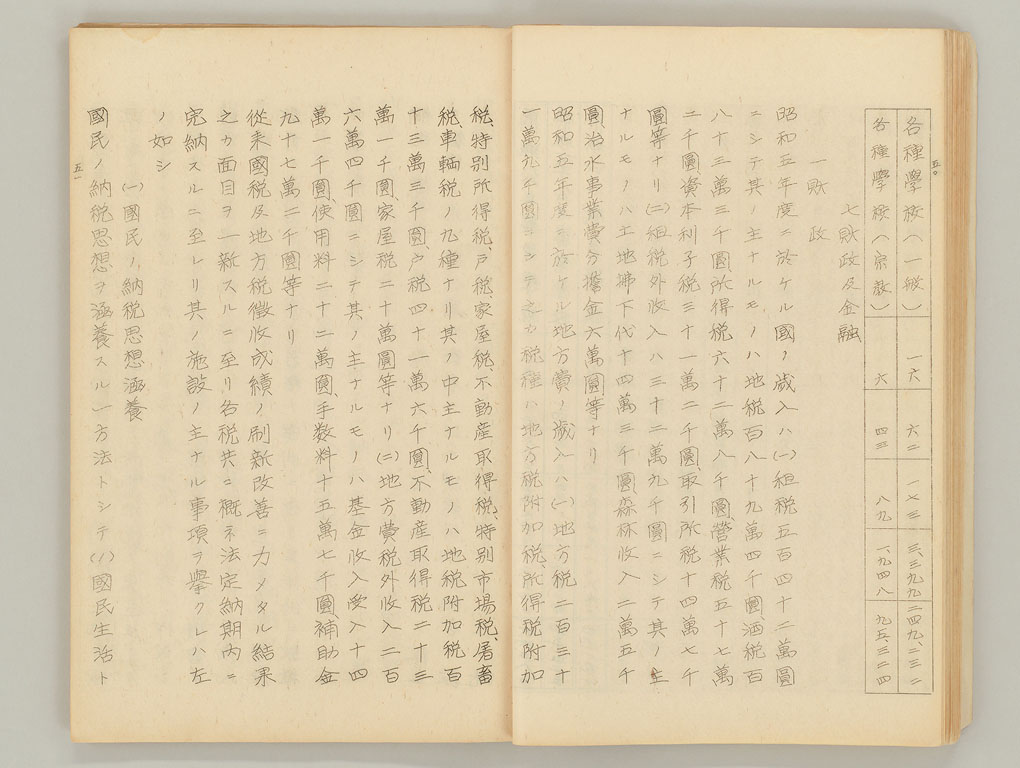 五〇
各種學校(一般) 一六 六二 一七三 三、三九九 二四九、三三二
各種學校(宗敎) 六 四三 八九 一、九四八 九五、三二四
七財政及金融
一財政
昭和五年度ニ於ケル國ノ歳入ハ(一)租税五百四十二萬圓
ニシテ其ノ主ナルモノハ地税百八十九萬四千圓酒税百
八十三萬三千圓、所得税六十二萬八千圓、營業税五十七萬
二千圓、資本利子税三十一萬二千圓、取引所税十四萬七千
圓等ナリ(二)租税外收入ハ三十二萬九千圓ニシテ其ノ主
ナルモノハ土地拂下代十四萬三千圓森林收入二萬五千
圓、治水事業費分擔金六萬圓等ナリ
昭和五年度ニ於ケル地方費ノ歳入ハ(一)地方税二百三十
一萬九千圓ニシテ之カ税種ハ地方税附加税、所得税附加
税、特別所得税、戸税、家屋税、不動産取得税、特別市場税、屠畜
税、車輛税ノ九種ナリ其ノ中主ナルモノハ地税附加税百
十三萬三千圓、戸税四十一萬六千圓、不動産取得税二十三
萬一千圓、家屋税二十萬圓等ナリ(二)地方費税外收入二百
六萬四千圓ニシテ其ノ主ナルモノハ基金收入受入十四
萬一千圓、使用料二十二萬圓、手数料十五萬七千圓、補助金
九十七萬二千圓等ナリ
從来國税及地方税徴收成績ノ刷新改善ニ力メタル結果
之カ面目ヲ一新スルニ至リ各税共ニ概ネ法定納期内ニ
完納スルニ至レリ其ノ施設ノ主ナル事項ヲ擧クレハ左
ノ如シ
(一)國民ノ納税思想涵養
國民ノ納税思想ヲ涵養スル一方法トシテ(イ)國民生活ト
五一